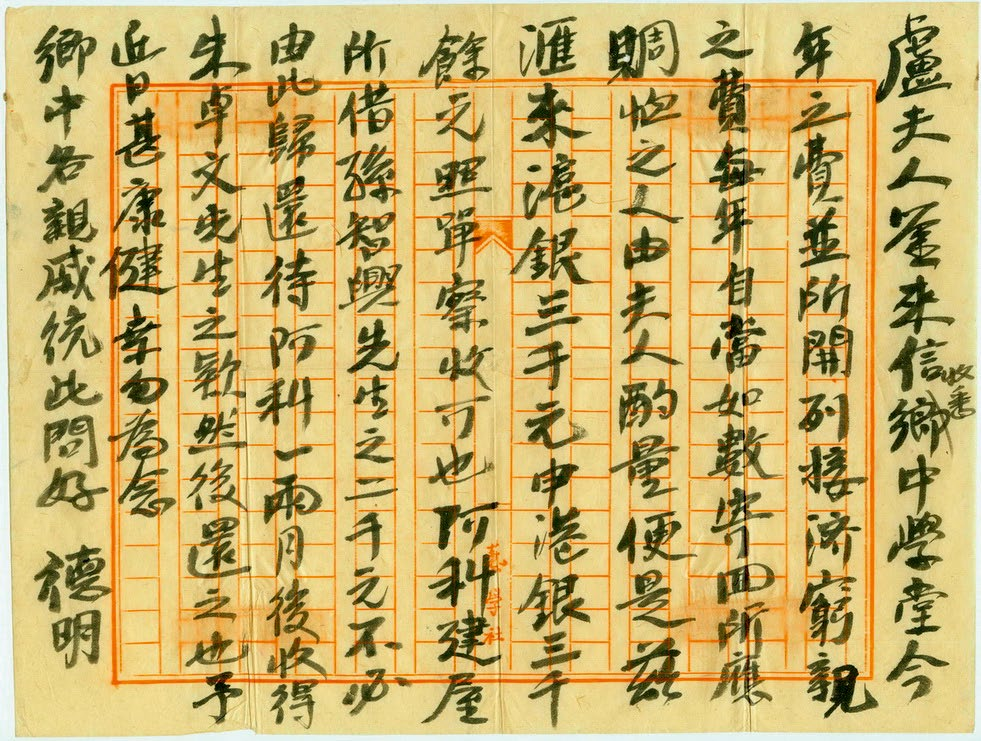 盧夫人鑒來信收悉鄉中學堂今
年之費並所開列接濟窮親
之費每年自當如數寄回所應
賙恤之人由夫人酌量便是茲
滙來滬銀三千元申港銀三千
餘元照單察收可也阿科建屋
所借孫智興先生之二千元不必
由此歸還待阿科一兩月後收得
朱卓文先生之欵然後還之也予
近日甚康健幸勿為念
鄉中各親戚統此問好 德明